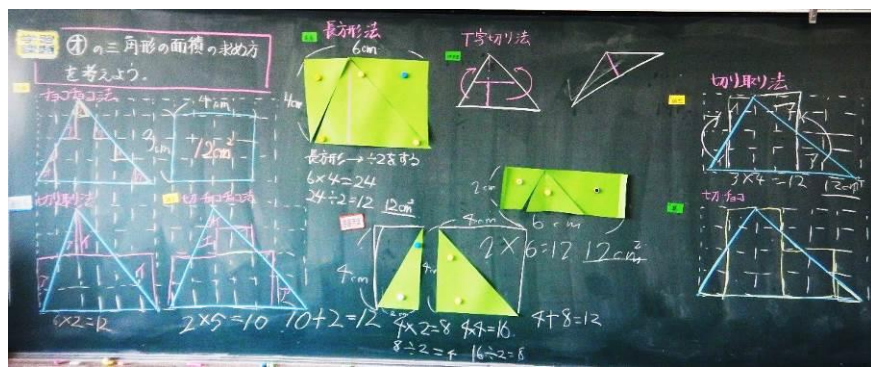 オの三角形の面積の求め方
を考えよう.
チョコチョコ法
4cm
3cm
12cm²
切り取り法
6×2=12
切チョコチョコ法
2×5=10 10+2=12
長方形法
6cm
4cm
長方形→÷2をする
6×4=24
24÷2=12 12cm²
丁字切り法
2cm
6cm
2×6=12 12cm²
4cm
4cm
2cm
4×2=8 4×4=16 4+8=12
8÷2=4 16÷2=8
切り取り法
3×4=12 12cm²
切チョコ